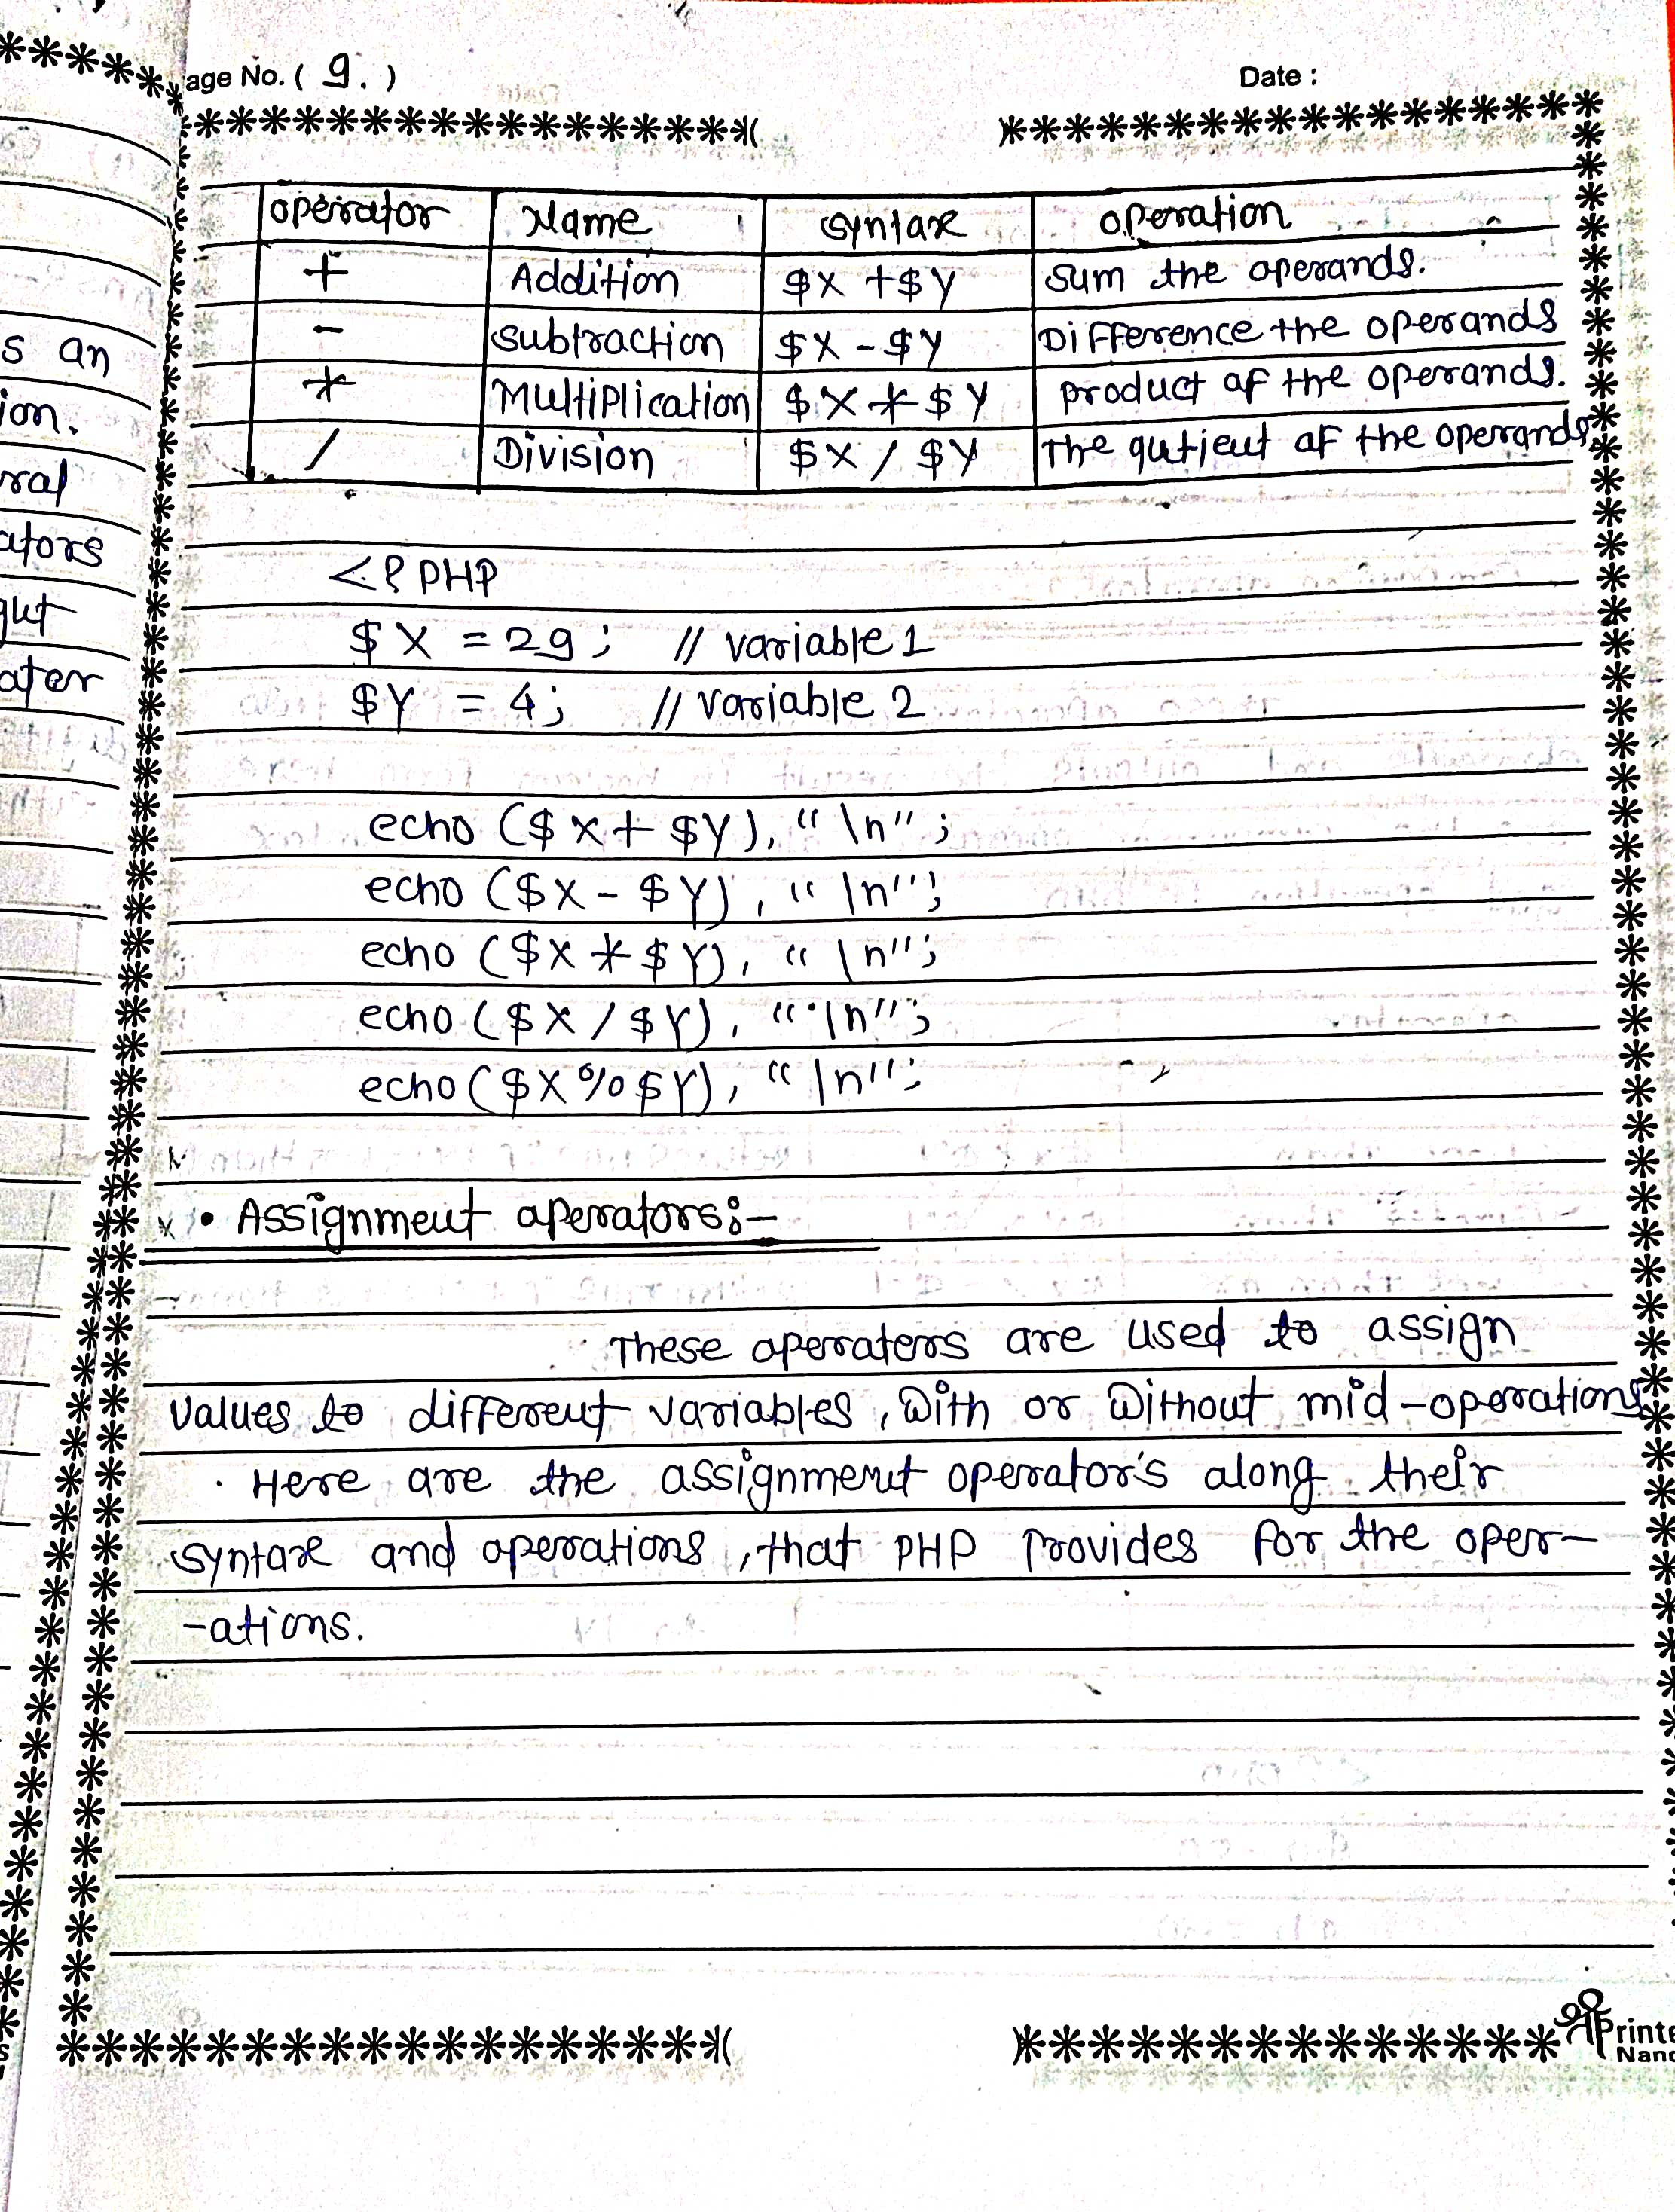 s an
ion.
ral
ators
gut
ater
age No. ( 9. ) Date :
operator Name syntax operation
+ Addition $X +$Y sum the operands.
- Subtraction $X - $Y Difference the operands
* Multiplication $X * $Y product of the operands.
/ Division $X / $Y The qutient of the operands
<? PHP
$X = 29; // variable 1
$Y = 4; // variable 2
echo ($X + $Y), "\n";
echo ($X - $Y), "\n";
echo ($X * $Y), "\n";
echo ($X / $Y), "\n";
echo ($X % $Y), "\n";
• Assignment operators:-
These operators are used to assign
values to different variables, with or without mid-operations
. Here are the assignment operator's along their
syntax and operations, that PHP Provides for the oper-
-ations.
Printe
Nand